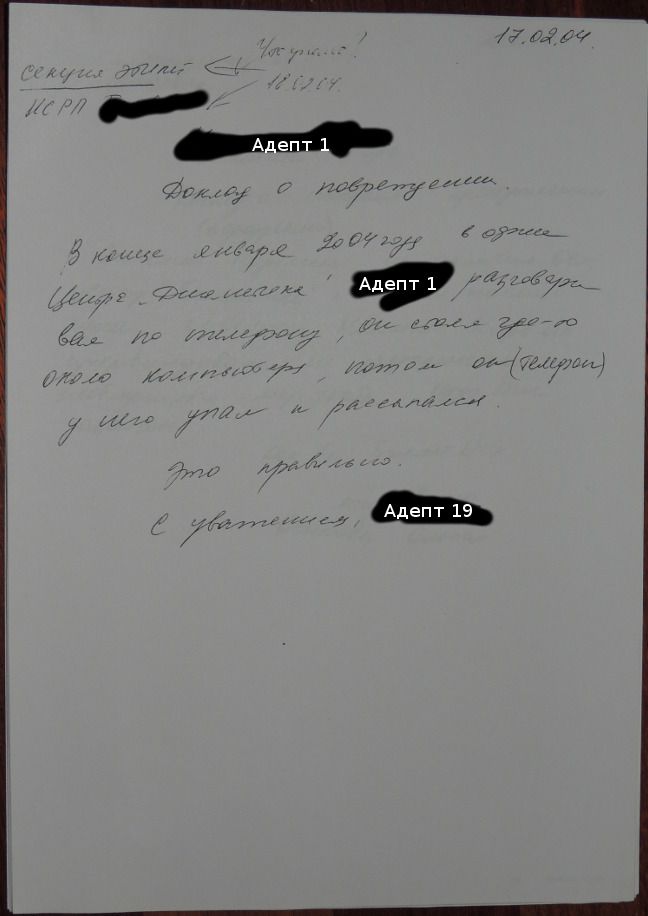 17.02.04.
секция этики
18.02.04.
ИСРП
Адепт 1
Доклад о повреждении.
В конце января 2004 году в
Центре „Дианетика" Адепт 1 разговари
вая по телефону, он стоял где-то
около компьютера, потом он (телефон)
у него упал и рассыпался.
Это правильно.
С уважением, Адепт 19